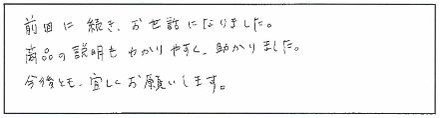 前回に続き、お世話になりました。
商品の説明もわかりやすく、助かりました。
今後とも、宜しくお願いします。